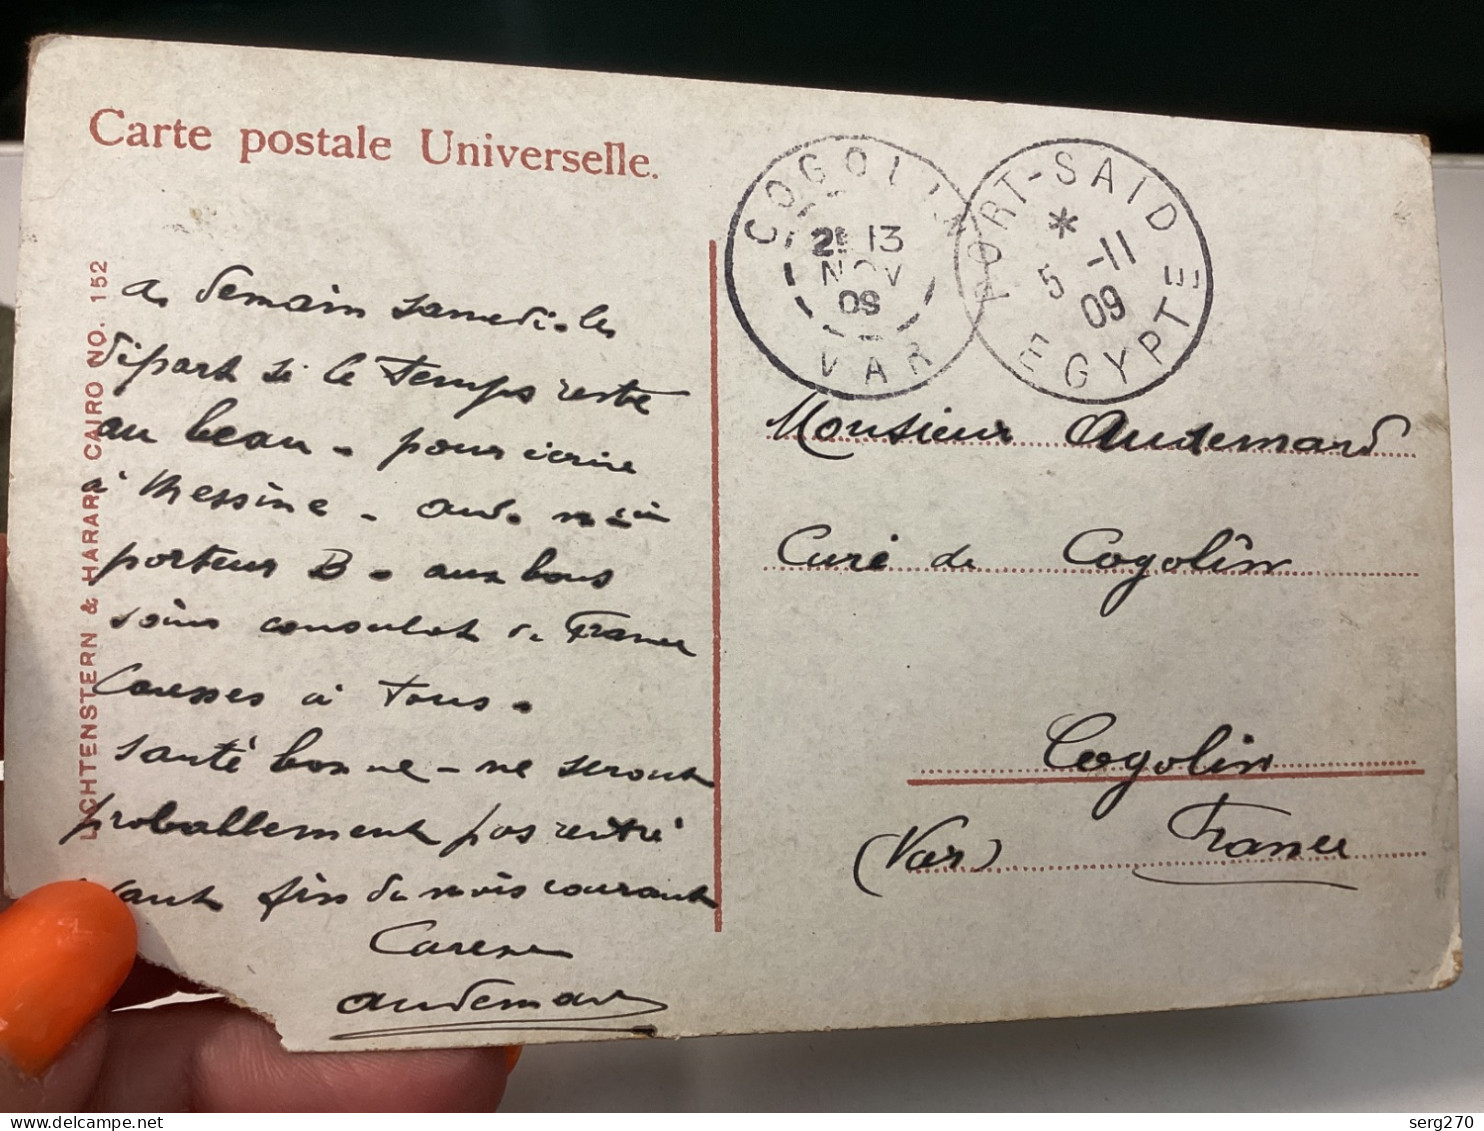 Carte postale Universelle.
LICHTENSTERN & HARARI CAIRO NO. 152
a demain samedi - le
départ si le temps reste
au beau - pour écrire
à Messine - Aud.
porteur B - aux bons
soins consulat de France
Caresses à tous -
santé bonne - ne seront
proballement pas rentré
avant fin du mois courant
Audemard
COGOLIN
2E 13
NOV
09
VAR
PORT-SAID
*
5 -11
09
EGYPTE
Monsieur Audemard
Curé de Cogolîn
Cogolin
(Var) France
serg270